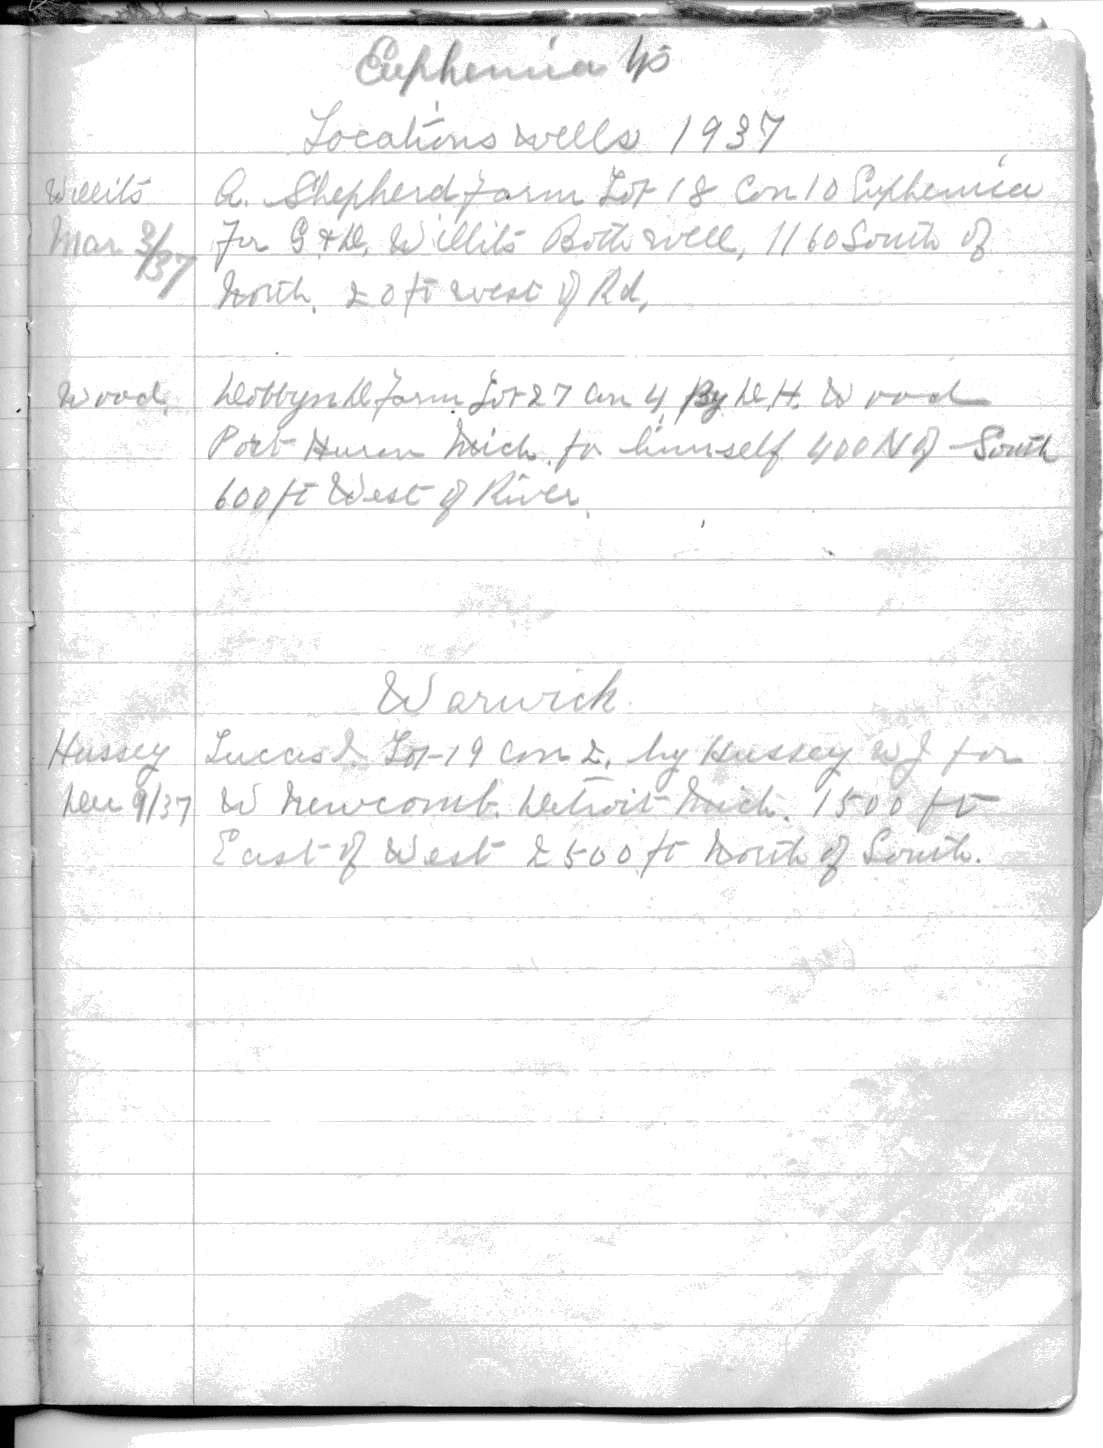 Euphemia Tp
Locations wells 1937
Willits A. Shepherd Farm Lot 18 Con 10 Euphemia
Mar 3/37 For G & D. Willits Bothwell, 1160 South of
North. 20 ft west of Rd,
Wood, Dobbyn D Farm Lot 27 Con 4 By D. H. Wood
Port Huron Mich. for himself 400 N of South
600 ft West of River.
Warwick.
Hussey Lucas Lot 19 Con 2, by Hussey W J for
Dec 9/37 W Newcomb. Detroit Mich. 1500 ft
East of West 2500 ft North of South.